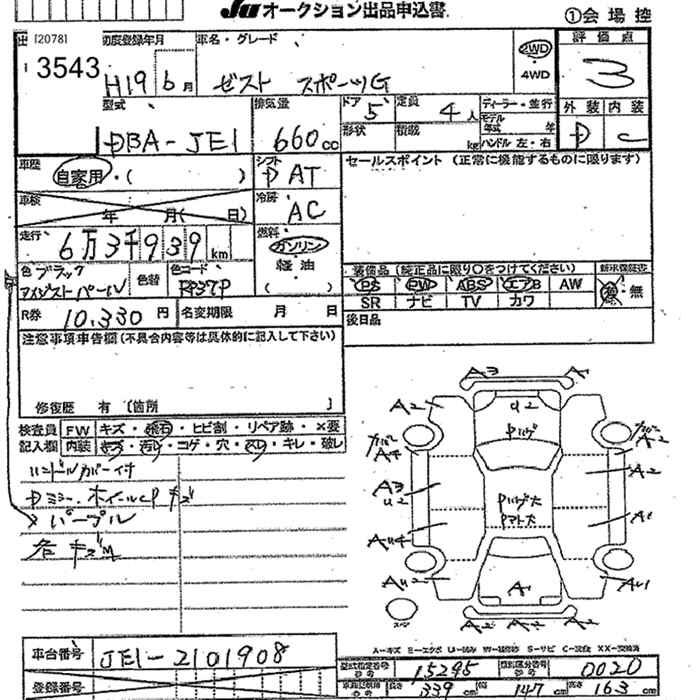 JU オークション出品申込書
①会場控
[2078]
3543
初度登録年月
H19 6月
車名・グレード
ゼスト スポーツG
2WD
・
4WD
評価点
3
型式
DBA-JE1
排気量
660cc
ドア 5
形状
定員 4人
積載 kg
ディーラー・並行
モデル年式 年
ハンドル 左・右
外装 内装
D C
車歴
自家用・( )
シフト
DAT
セールスポイント (正常に機能するものに限ります)
車検
年 月( 日)
冷房
AC
走行
6万3千939km
燃料
ガソリン
軽油
( )
色 ブラック
アメジストパール
色替
色コード
RP37P
装備品 (純正品に限り○をつけてください)
新車保証書
PS PW ABS エアB AW
有・無
SR ナビ TV カワ
R券 10,330円
名変期限 月 日
後日品
注意事項申告欄 (不具合内容等は具体的に記入して下さい)
修復歴 有 [箇所 ]
検査員 FW キズ・飛石・ヒビ割・リペア跡・×要
記入欄 内装 キズ・汚レ・コゲ・穴・スレ・キレ・破レ
ハンドルカバー付
Dミラー・ホイールCP キズ
パープル
A3 A1
A2 U2
Pハゲ
カバーA4 カバーA2
A2
A3
U2
Pハゲ大
Pマト大
A1
AU4
AU2 A1 AU1
スペア
A2 A2 A2
A-キズ E-エクボ U-凹み W-補修跡 S-サビ C-腐食 XX-交換済
車台番号 JE1-2101908
登録番号
型式指定番号 15295
類別区分番号 0020
長さ 339 幅 147 高さ 163cm